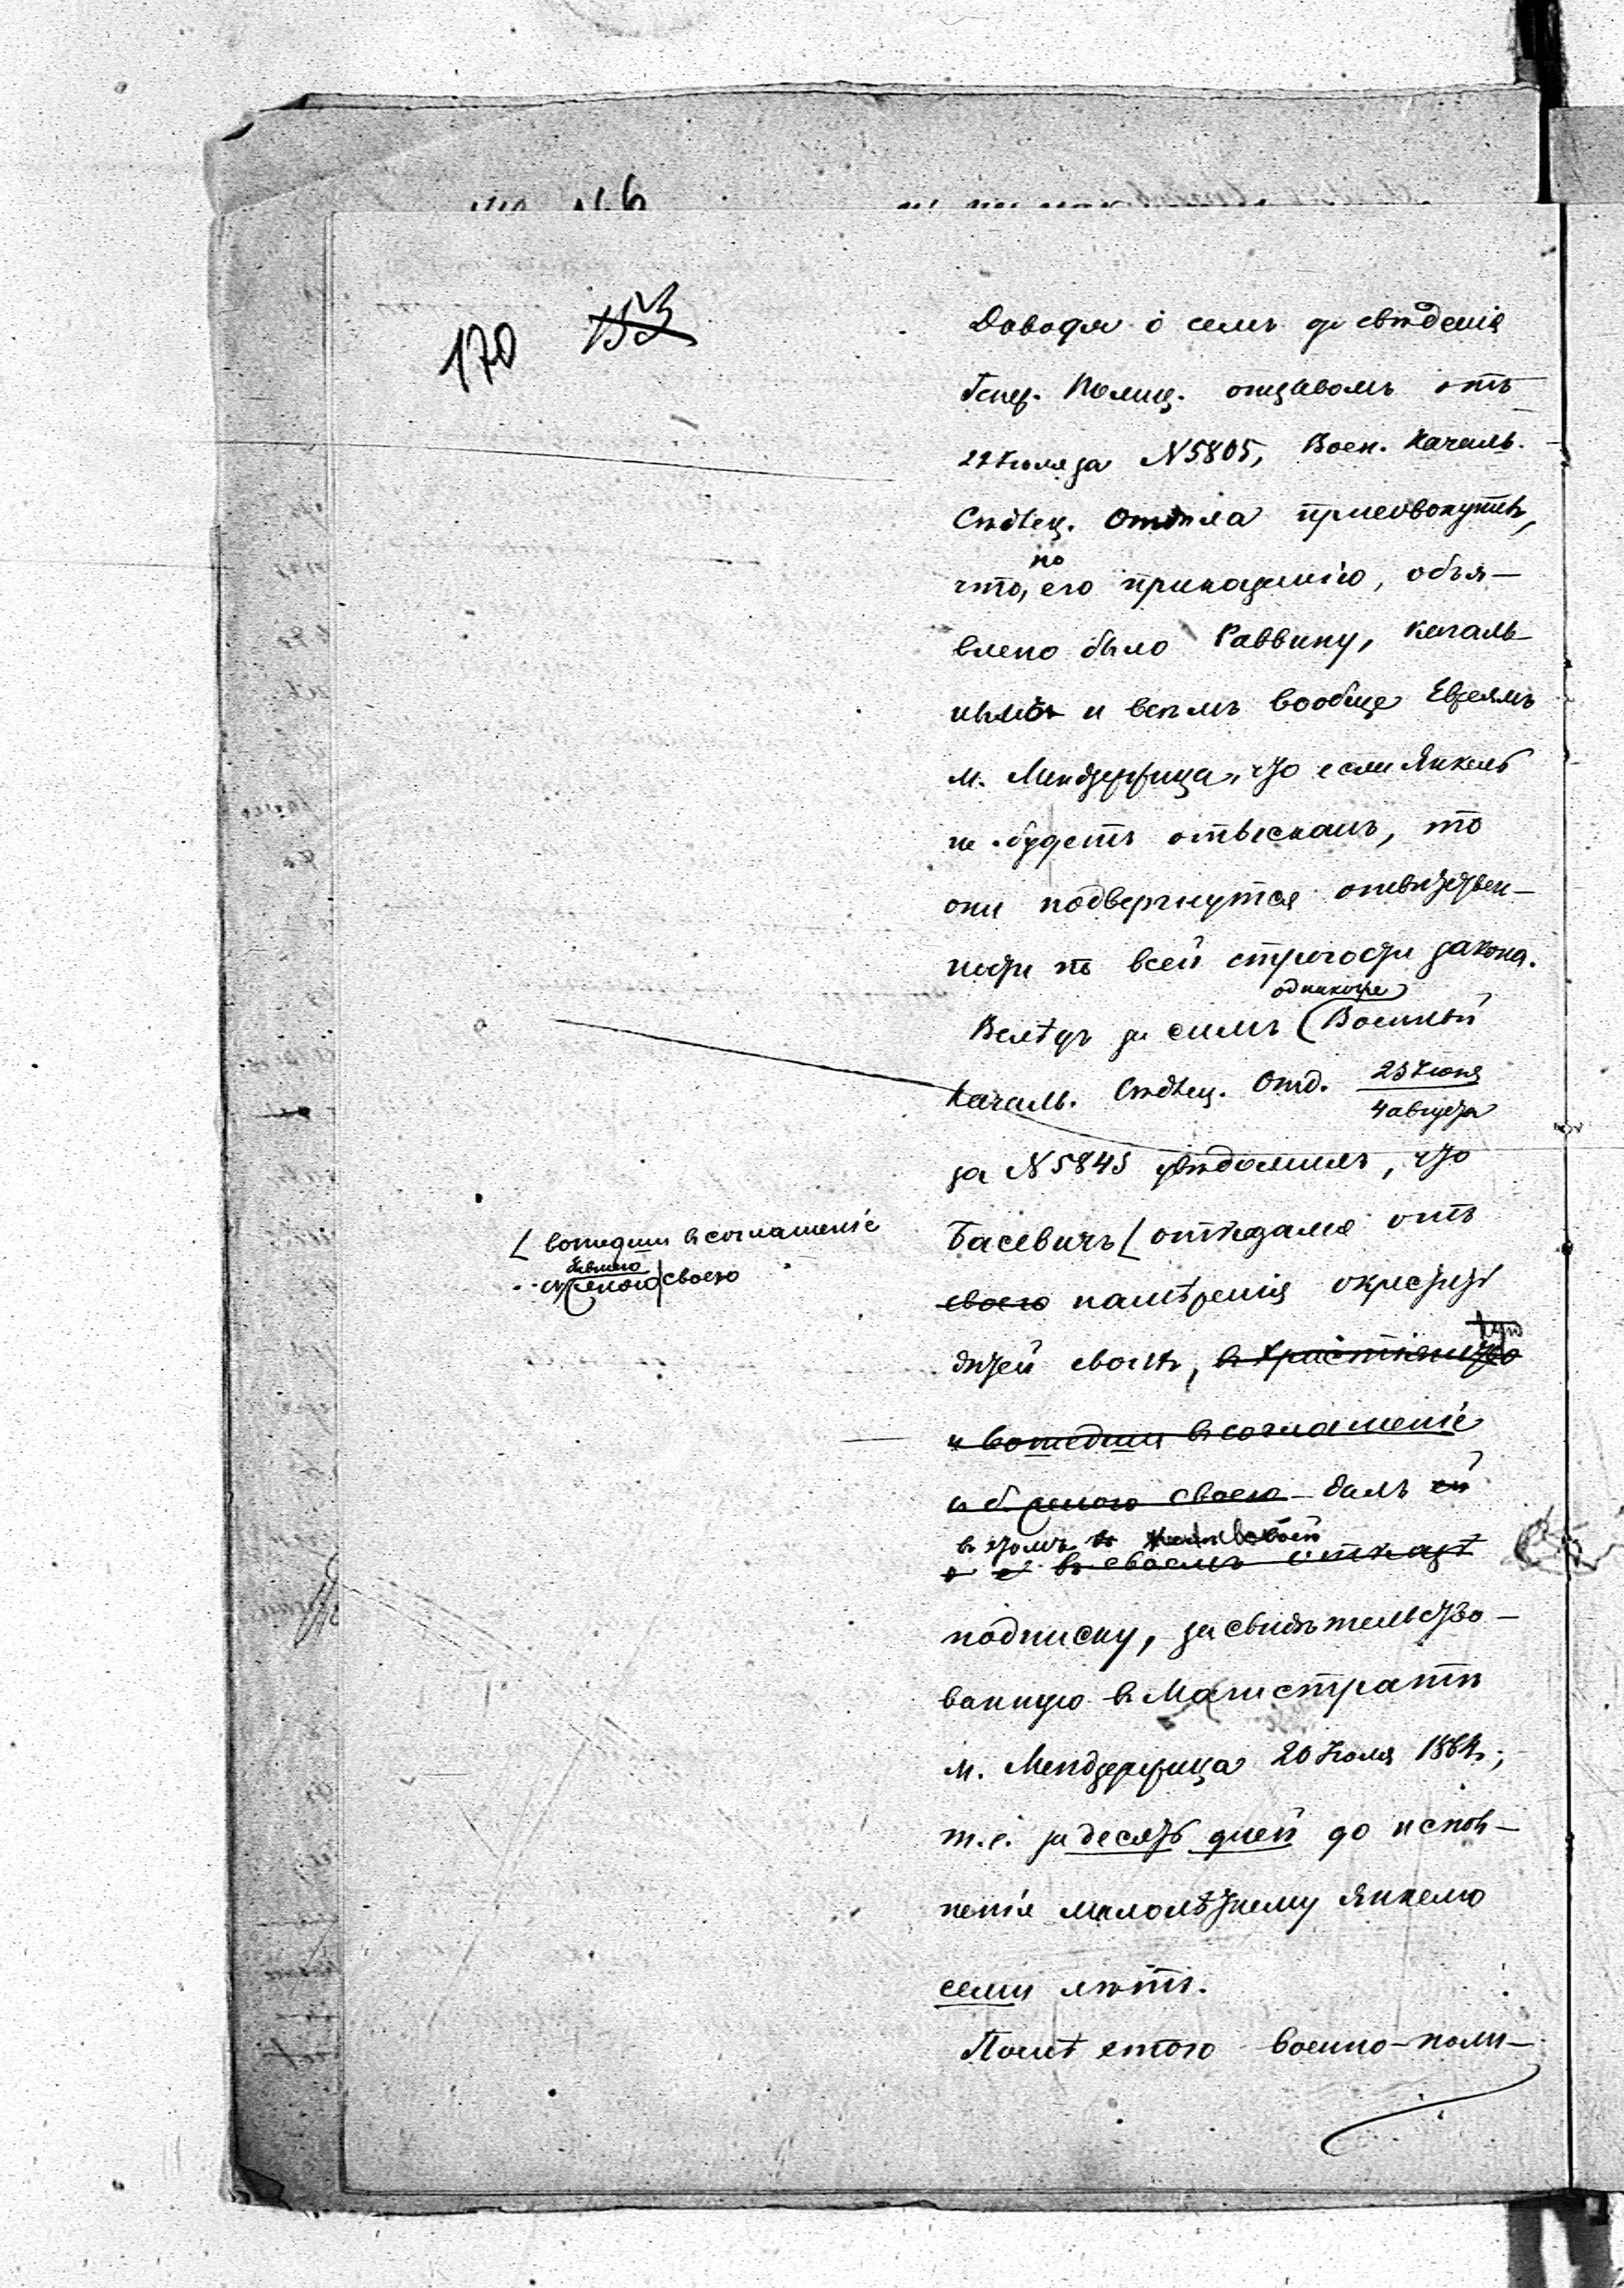 170 153
Доводя о семъ до свѣденія
Генер. Полиц. отзывомъ отъ
22 Іюля за N 5805, Воен. Началь.
Сѣдлец. Отдѣла присовокупилъ,
что, по его приказанію, объя-
влено было Раввину, кагаль-
нымъ и всѣмъ вообще Евреямъ
м. Мендзержица, что если Янкель
не будетъ отысканъ, то
они подвергнутся отвѣтствен-
ности по всей строгости закона.
Вслѣдъ за симъ (однакоже) Военный
Началь. Сѣдлец. Отд. 23 Іюня
4 августа
за N 5845 увѣдомилъ, что
Басевичъ [ отказался отъ
[ вошедши въ соглашеніе
съ женою своею
своего намѣренія окрестить
дѣтей своихъ, въ Христіянство
и вошедши въ соглашеніе
съ женою своею далъ ей
въ томъ
въ своемъ отказѣ
подписку, засвидѣтельство-
ванную въ Магистратѣ
м. Мендзержица 20 Іюля 1864,
т.е. за десять дней до испол-
ненія малолѣтнему Янкелю
семи лѣтъ.
Послѣ этого военно-поли-